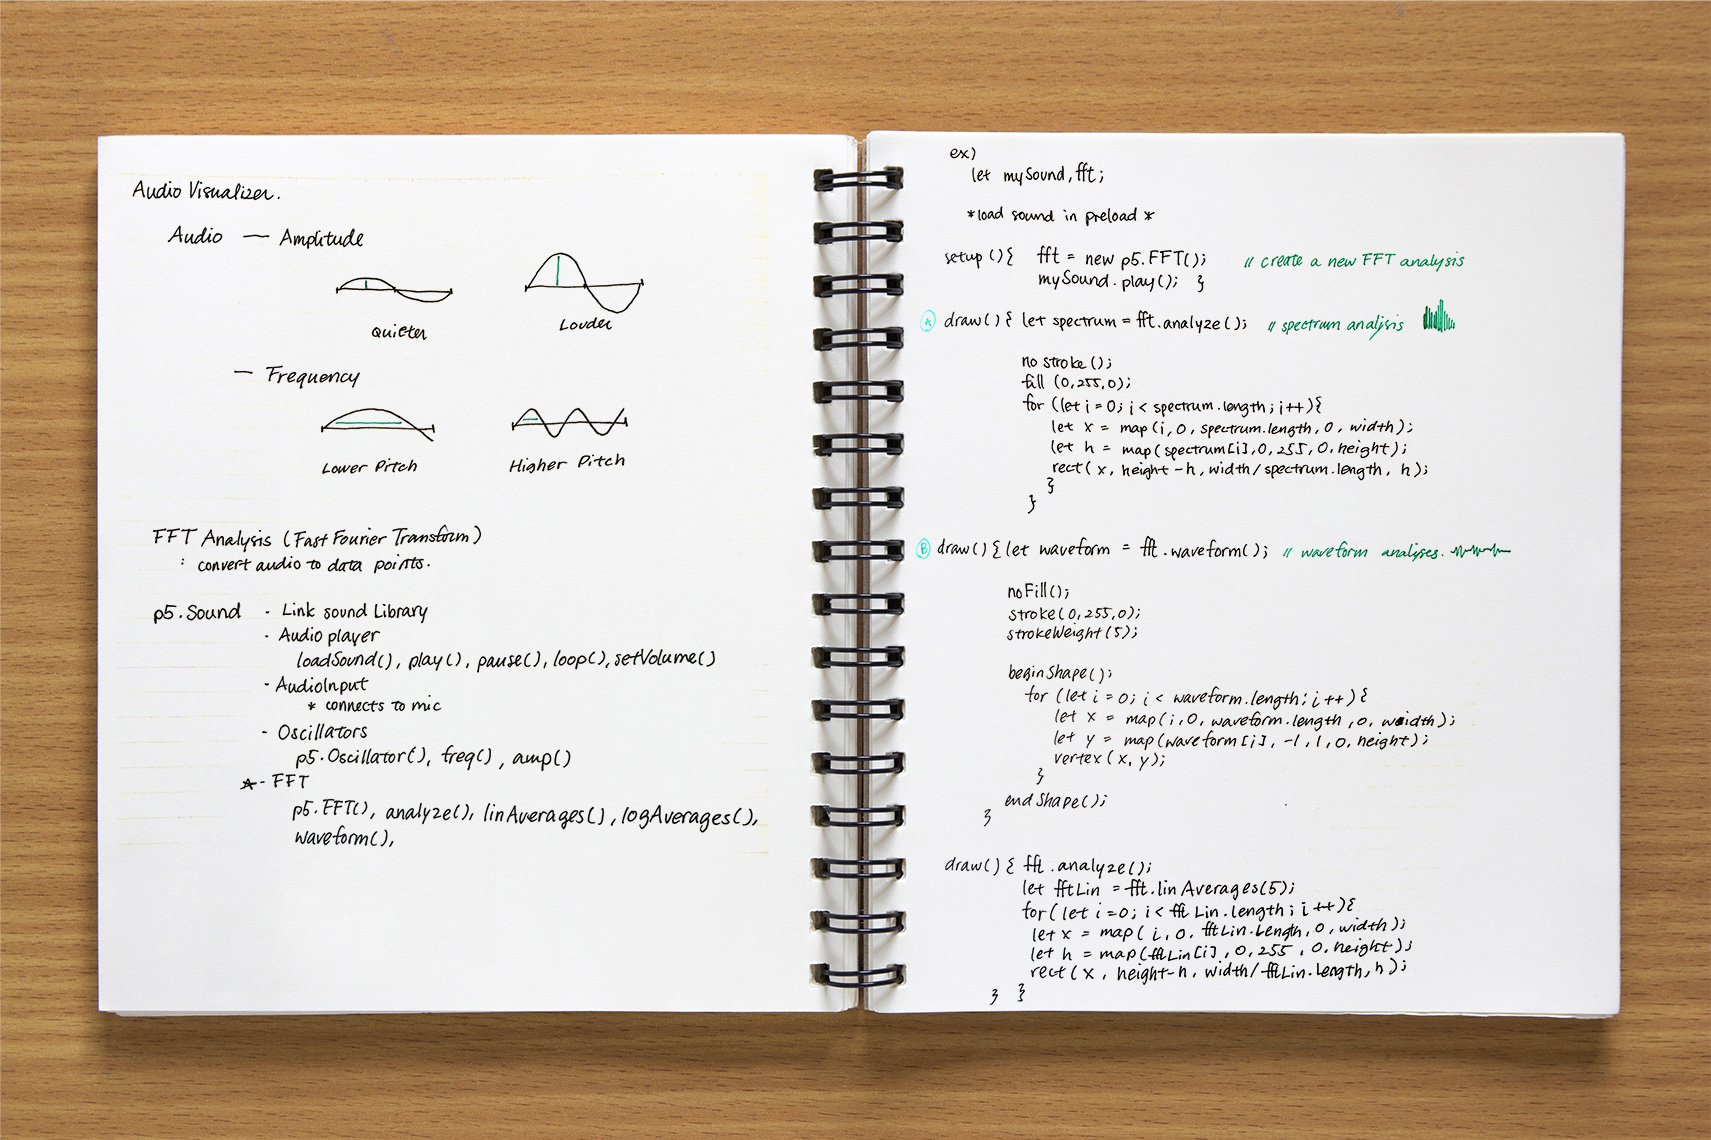 Audio Visualizer.
Audio — Amplitude
Quieter
Louder
— Frequency
Lower Pitch
Higher Pitch
FFT Analysis (Fast Fourier Transform)
: convert audio to data points.
p5.Sound - Link sound Library
- Audio player
loadSound(), play(), pause(), loop(), setVolume()
- AudioInput
* connects to mic
- Oscillators
p5.Oscillator(), freq(), amp()
* - FFT
p5.FFT(), analyze(), linAverages(), logAverages(),
waveform(),
ex)
let mySound, fft;
*load sound in preload *
setup(){ fft = new p5.FFT(); // create a new FFT analysis
mySound.play(); }
A draw(){ let spectrum = fft.analyze(); // spectrum analysis
no stroke();
fill (0,255,0);
for (let i = 0; i < spectrum.length; i++){
let x = map(i, 0, spectrum.length, 0, width);
let h = map(spectrum[i], 0, 255, 0, height);
rect(x, height - h, width/spectrum.length, h);
}
}
B draw(){ let waveform = fft.waveform(); // waveform analyses.
noFill();
stroke(0,255,0);
strokeWeight(5);
beginShape();
for (let i = 0; i < waveform.length; i++){
let x = map(i, 0, waveform.length, 0, width);
let y = map(waveform[i], -1, 1, 0, height);
vertex(x, y);
}
endShape();
}
draw(){ fft.analyze();
let fftLin = fft.linAverages(5);
for(let i=0; i < fftLin.length; i++){
let x = map(i, 0, fftLin.length, 0, width);
let h = map(fftLin[i], 0, 255, 0, height);
rect(x, height-h, width/fftLin.length, h);
} }